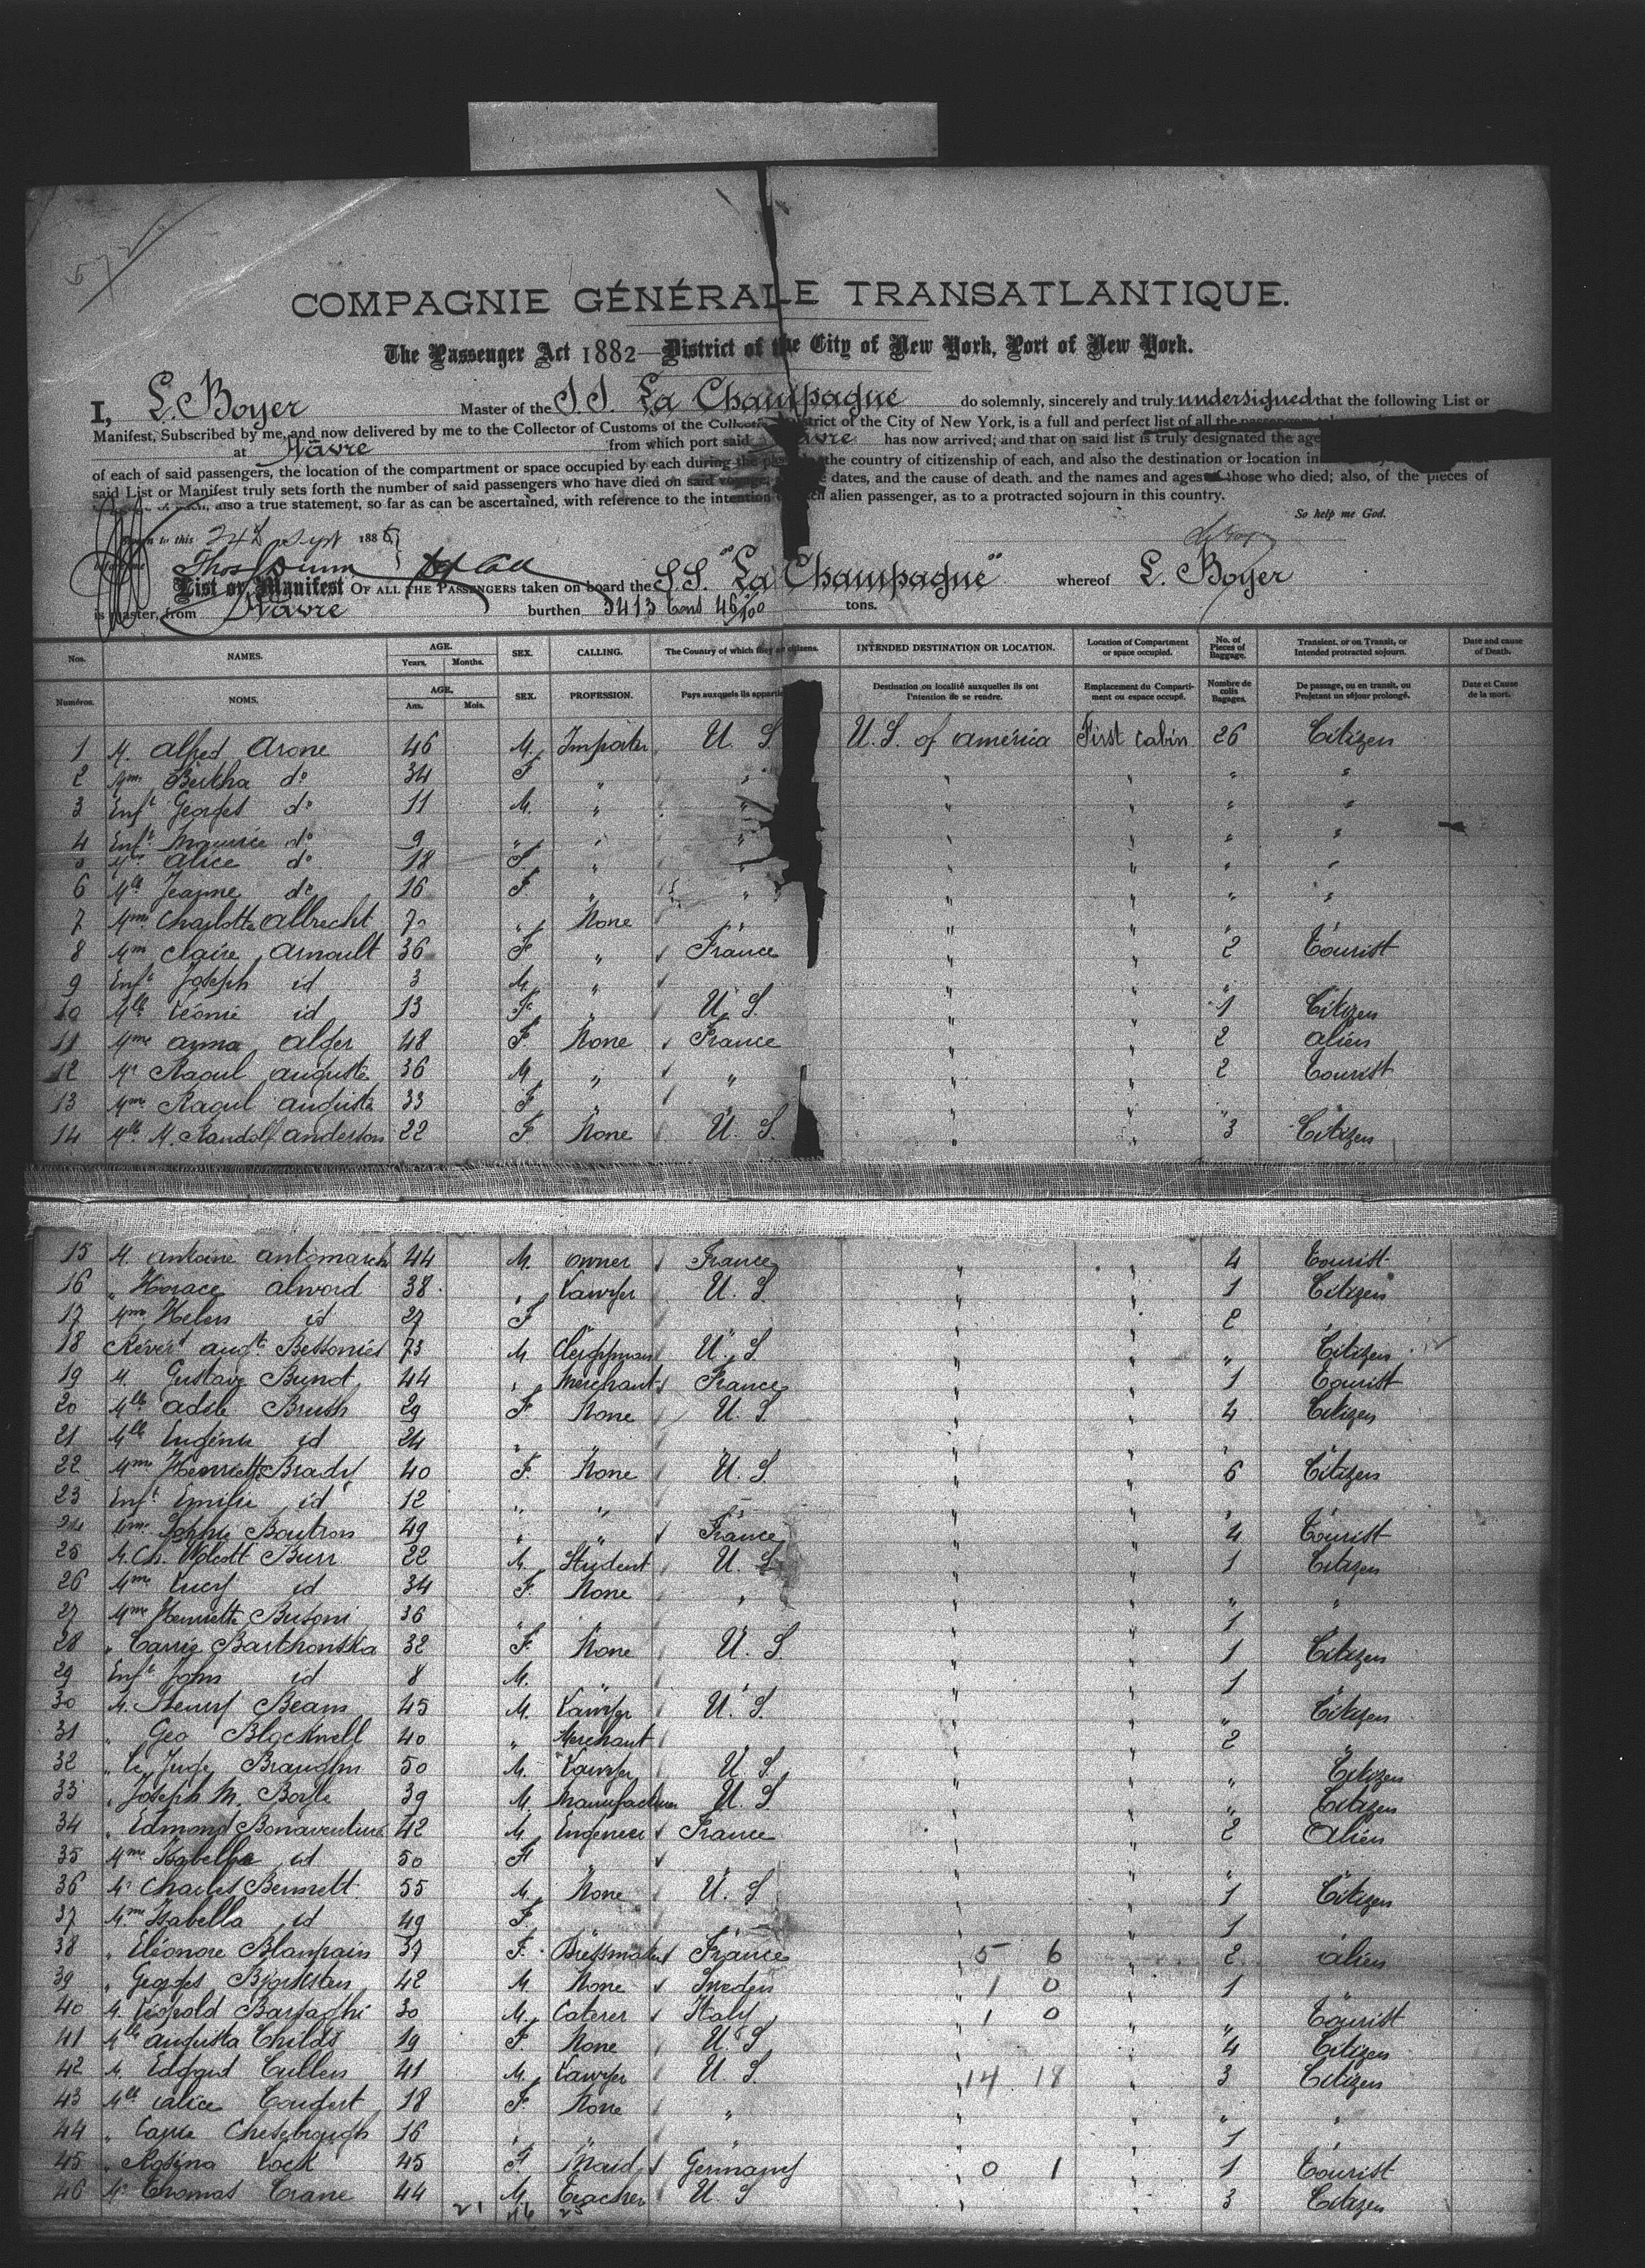 57
COMPAGNIE GÉNÉRALE TRANSATLANTIQUE.
The Passenger Act 1882—District of the City of New York, Port of New York.
I, L. Boyer Master of the S.S. La Champagne do solemnly, sincerely and truly undersigned that the following List or
Manifest, Subscribed by me, and now delivered by me to the Collector of Customs of the District of the City of New York, is a full and perfect list of all the
at Havre from which port said Havre has now arrived; and that on said list is truly designated the age
of each of said passengers, the location of the compartment or space occupied by each during the the country of citizenship of each, and also the destination or location in
said List or Manifest truly sets forth the number of said passengers who have died on said voyage, dates, and the cause of death. and the names and ages of those who died; also, of the pieces of
also a true statement, so far as can be ascertained, with reference to the intention alien passenger, as to a protracted sojourn in this country.
So help me God.
to this 24 Sept 188
Thos Dunn
List or Manifest OF ALL THE PASSENGERS taken on board the S.S. "La Champagne" whereof L. Boyer
is master, from Havre burthen 3413 tons 46/100 tons.
Nos. NAMES. AGE. Years. Months. SEX. CALLING. The Country of which they are citizens. INTENDED DESTINATION OR LOCATION. Location of Compartment or space occupied. No. of Pieces of Baggage. Transient, or on Transit, or Intended protracted sojourn. Date and cause of Death.
Numéros. NOMS. AGE. Ans. Mois. SEX. PROFESSION. Pays auxquels ils Destination ou localité auxquelles ils ont l'intention de se rendre. Emplacement du Compartiment ou espace occupé. Nombre de colis Bagages. De passage, ou en transit, ou Projetant un séjour prolongé. Date et Cause de la mort.
1 M. Alfred Arone 46 M. Importer U. S. U.S. of America First Cabin 26 Citizen
2 Mme Bertha do 34 F " " " " " "
3 Enft Georges do 11 M. " " " " " "
4 Enft Maurice do 9 " " " " " " "
5 Alice do 18 F. " " " " " "
6 Mlle Jeanne do 16 F. " " " " " "
7 Mme Charlotte Albrecht 70 " None " " " " "
8 Mme Claire Arnoult 36 F " France " " 2 Tourist
9 Enft Joseph id 3 M. " " " "
10 Mlle Léonie id 13 F. " U. S. " " 1 Citizen
11 Mme Anna Alger 48 F None France " " 2 Alien
12 Mr Raoul Auguste 36 M. " " " " 2 Tourist
13 Mme Raoul Auguste 33 F " " " " " "
14 Mlle M. Randolf Anderson 22 F. None U. S. " " 3 Citizen
15 M. Antoine Antomarchi 44 M. Owner France " " 4 Tourist
16 " Horace Alword 38 " Lawyer U. S. " " 1 Citizen
17 Mme Helen id 27 F " " " 2 "
18 Révérd Augt Bessonies 73 M Clergyman U. S. " " " Citizen
19 M. Gustave Bunot 44 " Merchant France " " 1 Tourist
20 Mlle Adele Brush 29 F None U. S. " " 4 Citizen
21 Mlle Eugénie id 24 " " " " " "
22 Mme Henriette Brady 40 F. None U. S. " " 6 Citizen
23 Enft Emilie id 12 " " " " " "
24 Mme Sophie Boutron 49 " " France " " 4 Tourist
25 M. Ch. Wolcott Burr 22 M. Student U. S. " " 1 Citizen
26 Mme Lucy id 34 F. None " " " " "
27 Mme Henriette Busoni 36 " " " 1
28 " Carrie Barthonska 32 F. None U. S. " " 1 Citizen
29 Enft John id 8 M. " " " 1 "
30 M. Henry Beam 45 M. Lawyer U. S. " " " Citizen
31 " Geo Blackwell 40 " Merchant " " 2 "
32 " Le Juge 50 M. Lawyer U. S. " " " Citizen
33 " Joseph M. Boyle 39 M. Manufacturer U. S. " " " Citizen
34 " Edmond Bonaventure 42 M. Engeneer France " " 2 Alien
35 Mme Isabelle id 50 F " " " " "
36 Mr Charles Bennett 55 M. None U. S. " " 1 Citizen
37 Mme Isabella id 49 F. " " " 1 "
38 " Eléonore Blampain 37 F. Dressmaker France 5 6 " 2 Alien
39 " Georges 42 M. None Sweden 1 0 " 1 "
40 M. Léopold 30 M. Caterer Italy 1 0 " " Tourist
41 Mlle Augusta Childs 19 F. None U. S. " " 4 Citizen
42 M. Edgard Cullen 41 M. Lawyer U. S. 14 18 " 3 Citizen
43 Mlle Alice 18 F. None " " " " "
44 " Carrie Chesebrough 16 " " " " " 1 "
45 " Rosina Cock 45 F. Maid Germany 0 1 " 1 Tourist
46 Mr Thomas Crane 44 M. Teacher U. S. " " 3 Citizen
21 46 25